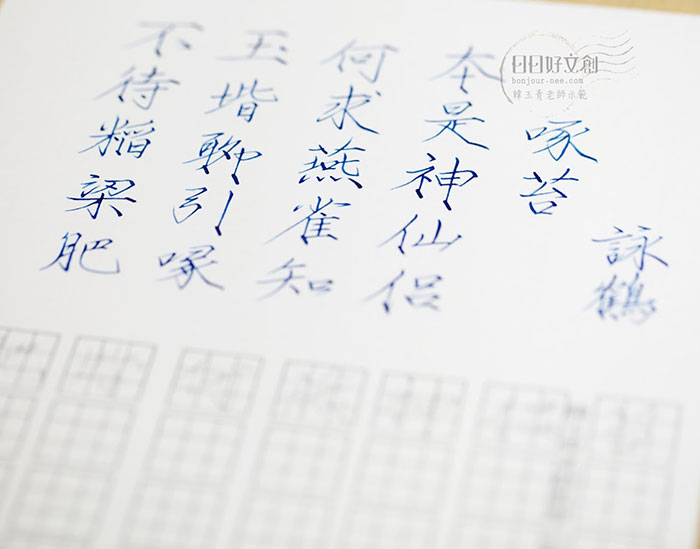 日日好文創
bonjour-nee.com
韓玉青老師示範
詠鶴
啄苔
本是神仙侶
何求燕雀知
玉堦聊引啄
不待稻粱肥